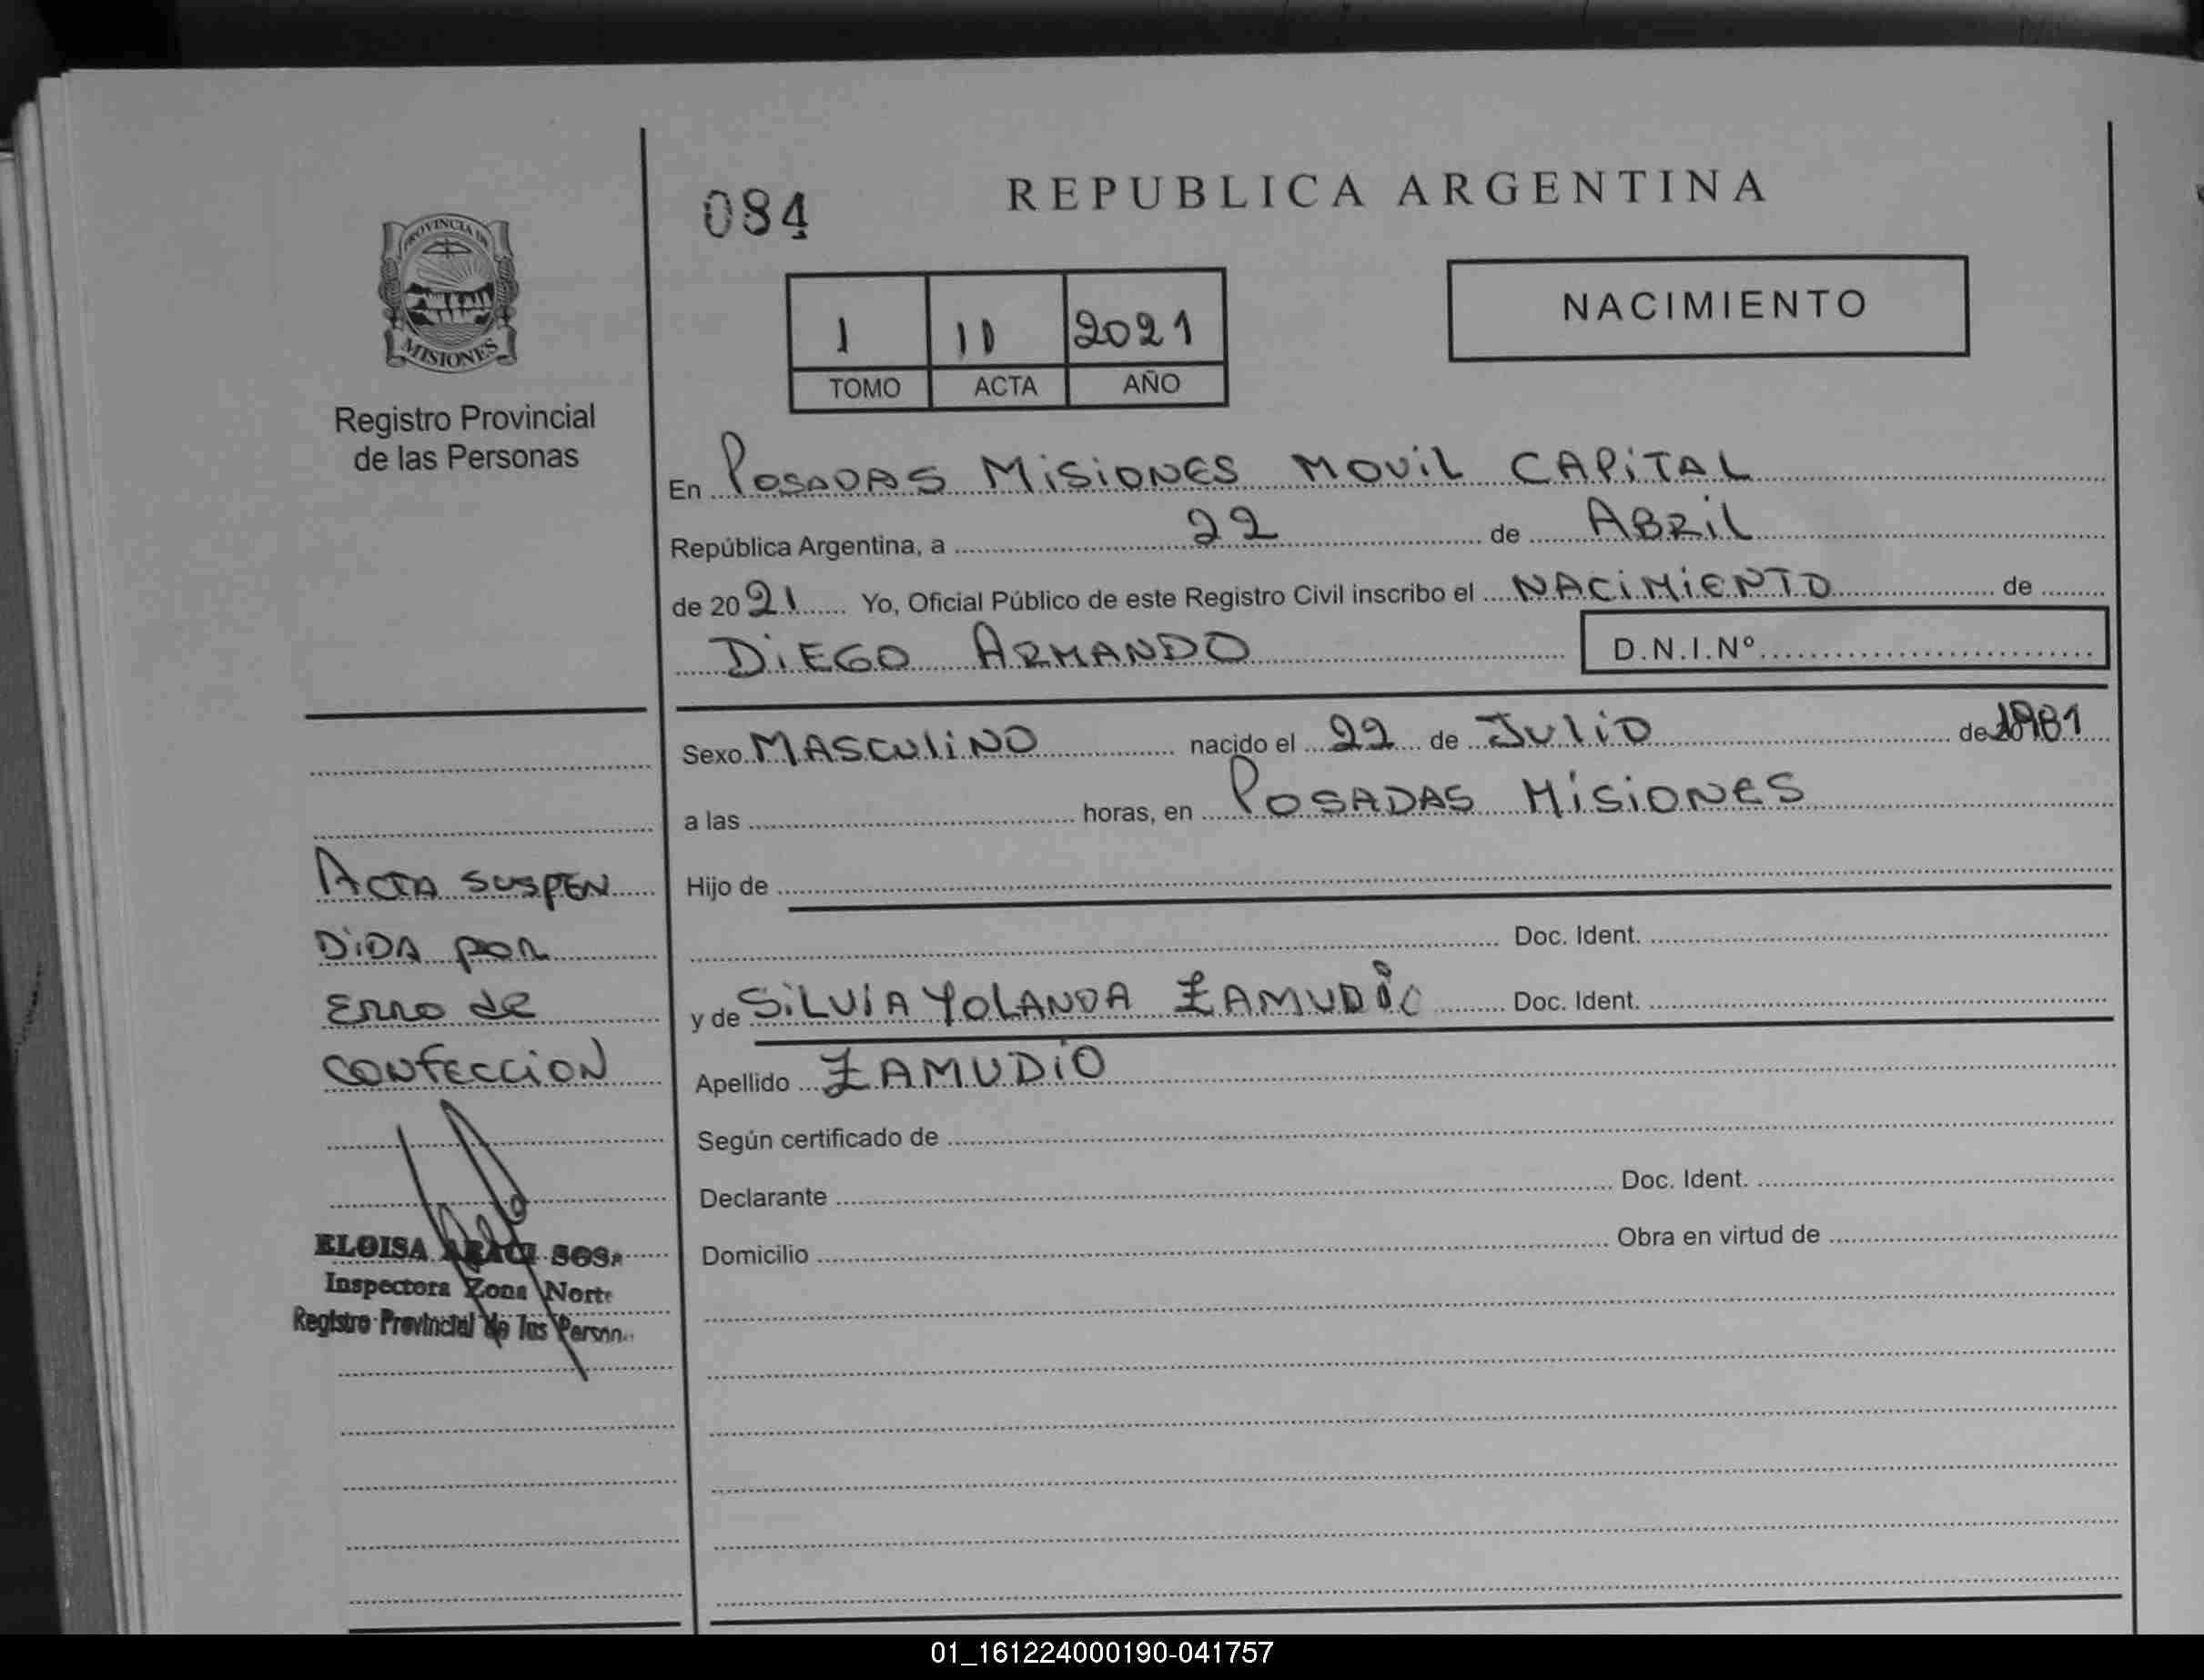 PROVINCIA DE
MISIONES
Registro Provincial
de las Personas
084
REPUBLICA ARGENTINA
1 11 2021
TOMO ACTA AÑO
NACIMIENTO
En POSADAS MISIONES MOVIL CAPITAL
República Argentina, a 22 de ABRIL
de 2021 Yo, Oficial Público de este Registro Civil inscribo el NACIMIENTO de
DIEGO ARMANDO D.N.I.Nº
Sexo MASCULINO nacido el 22 de JULIO de 1981
a las horas, en POSADAS MISIONES
Hijo de
Doc. Ident.
y de SILVIA YOLANDA ZAMUDIO Doc. Ident.
Apellido ZAMUDIO
Según certificado de
Declarante Doc. Ident.
Domicilio Obra en virtud de
ACTA SUSPEN
DIDA POR
ERRO de
CONFECCION
ELOISA ARACI SOSA
Inspectora Zona Norte
Registro Provincial de las Person
01_161224000190-041757